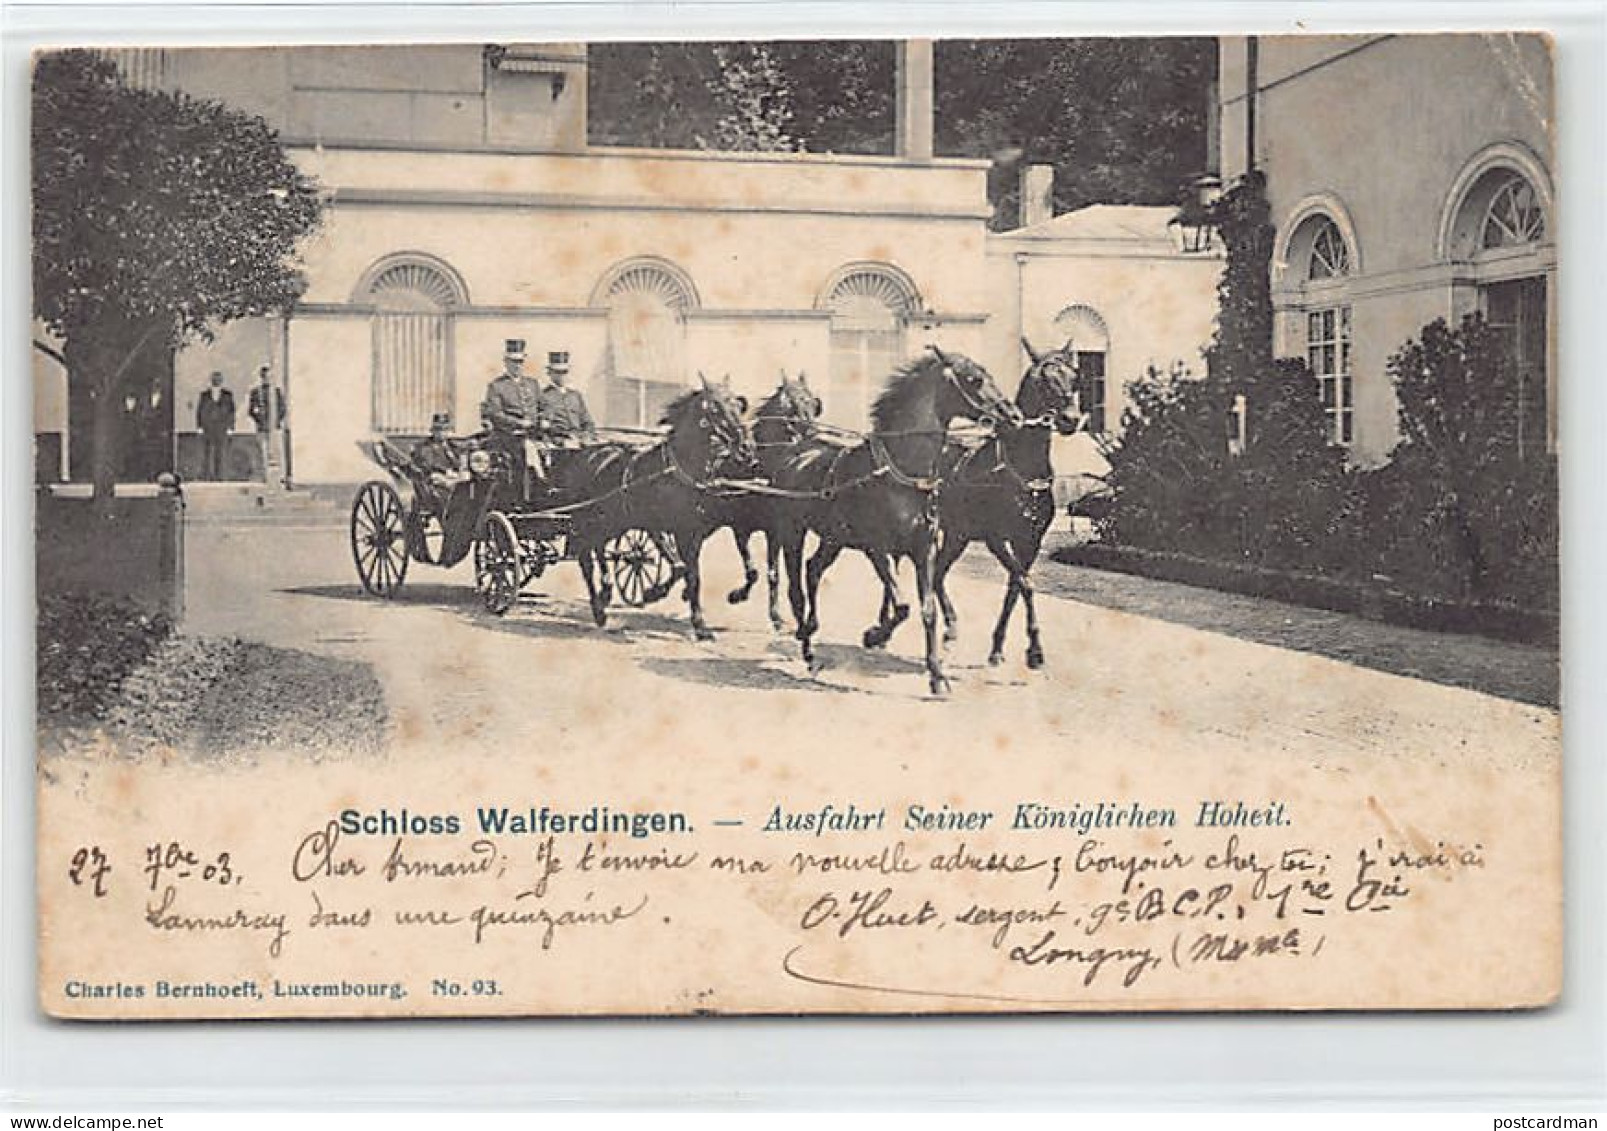 Schloss Walferdingen. — Ausfahrt Seiner Königlichen Hoheit.
27 7bre 03. Cher Armand; Je t'envoie ma nouvelle adresse; bonjour chez toi; j'irai à
Lanneray dans une quinzaine.
O. Huet, sergent, 9e B.C.P., 1re Cie
Longwy, (M
Charles Bernhoeft, Luxembourg. No. 93.
postcardman